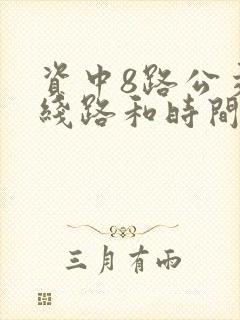 资中8路公交
綫路和時間
三月有雨